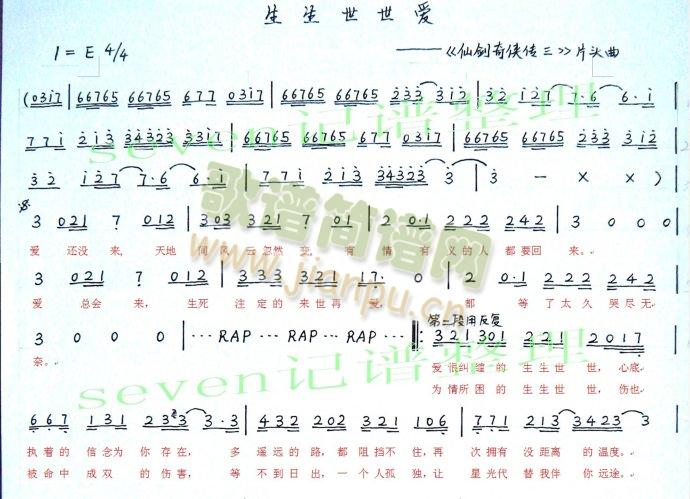 生生世世爱
1=E 4/4 ——《仙剑奇侠传三》片头曲
(0317 | 66765 66765 677 0317 | 66765 66765 2·33 3123 | 32 127 7·6 6·1 |
771 213 34323 3317 | 66765 66765 677 0317 | 66765 66765 233 3123 |
32 127 7·6 6·1 | 771 213 34323 3 | 3 — × × )
3 021 7 012 | 303 321 7 01 | 2 0·1 222 242 | 3 0 0 0
爱 还没 来, 天地 间风 云忽然 变, 有 情 有 义的人 都要回 来。
3 021 7 012 | 333 321 17· 0 | 2 0·1 222 242
爱 总会 来, 生死 注定的 来世再 爱, 都 等 了太久 哭尽无
第二段用反复
3 0 0 0 | ··· RAP ··· RAP ··· RAP ··· 321 301 221 2017
奈。 爱恨纠缠的 生生世 世,心底
为情所困的 生生世 世,伤也
667 131 233 3·3 | 432 202 321 106 | 771 213 3423 3
执着的 信念为 你存在, 多 遥远的 路,都 阻挡不 住,再 次拥有 没距离 的温度。
被命中 成双 的伤害, 等 不到日 出,一 个人孤 独,让 星光代 替我伴 你远途。
seven记谱整理
seven记谱整理
歌谱简谱网
www.jianpu.cn